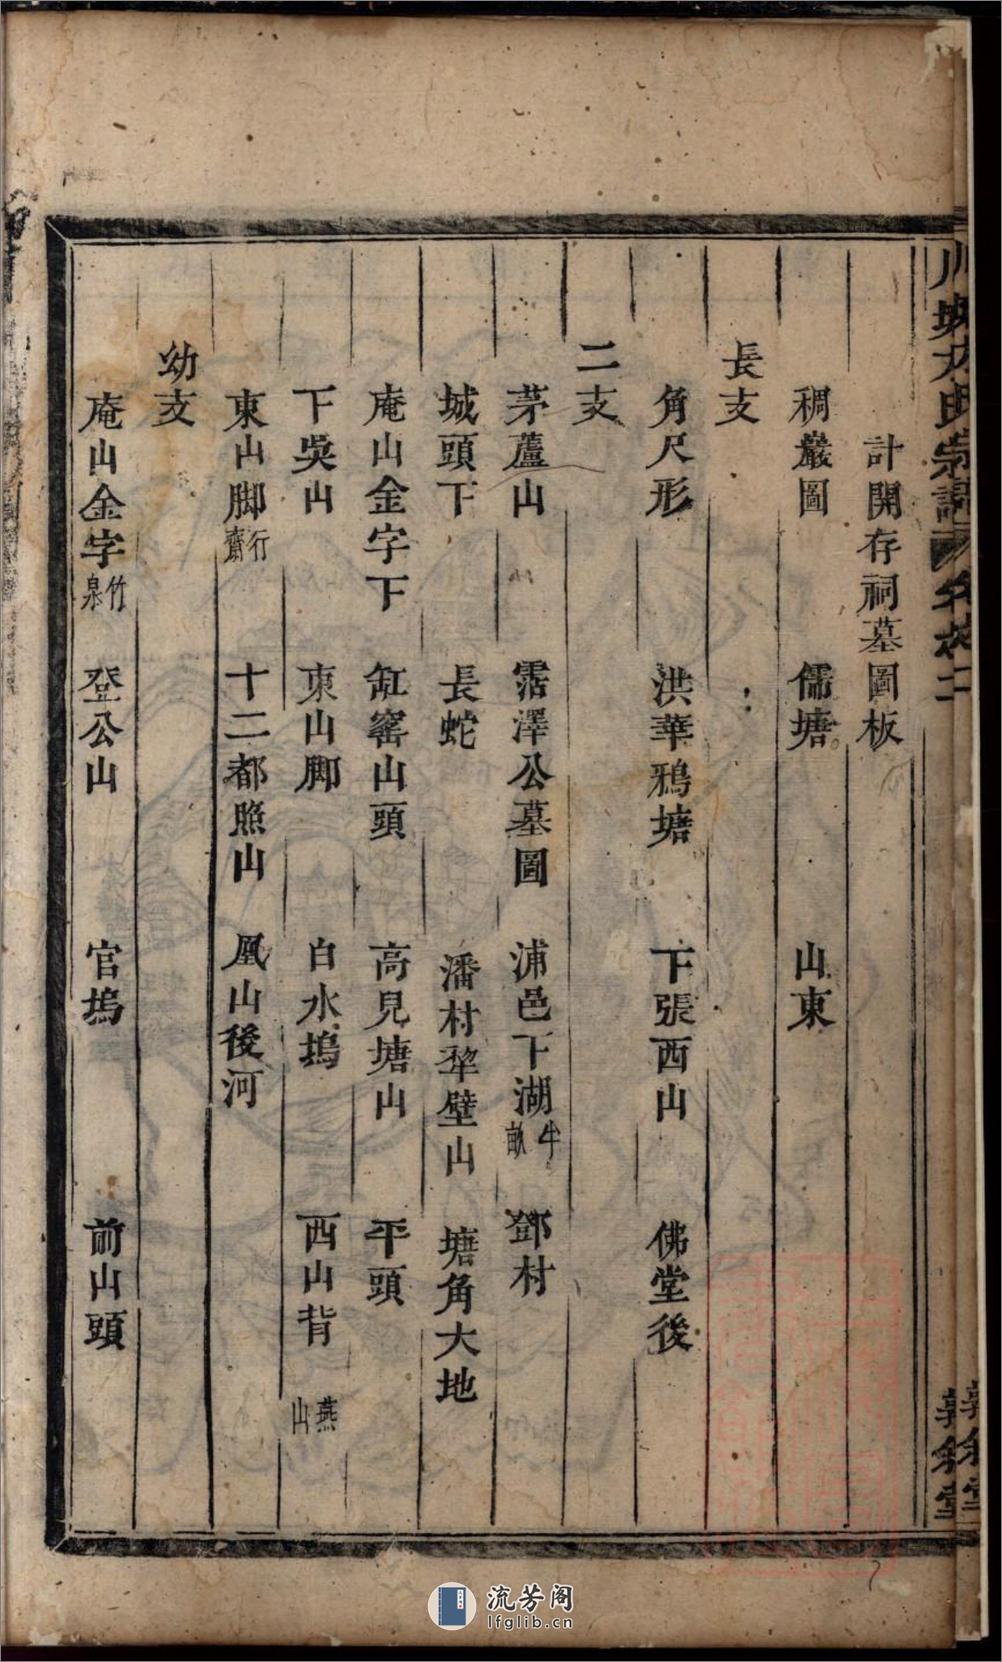 計開存祠墓圖板
稠巖圖　儒塘　山東
長支
角尺形　洪華鴉塘　下張西山　佛堂後
二支
茅蘆山　霑澤公墓圖　浦邑下湖半畝　鄧村
城頭下　長蛇　潘村犂壁山　塘角大地
庵山金字下　缸窰山頭　高見塘山　平頭
下吳山　東山脚　白水塢　西山背　燕山
東山脚行齋　十二都照山　凰山後河
幼支
庵山金字竹泉　登公山　官塢　前山頭
方氏宗譜
敦敘堂
流芳阁
lfglib.cn